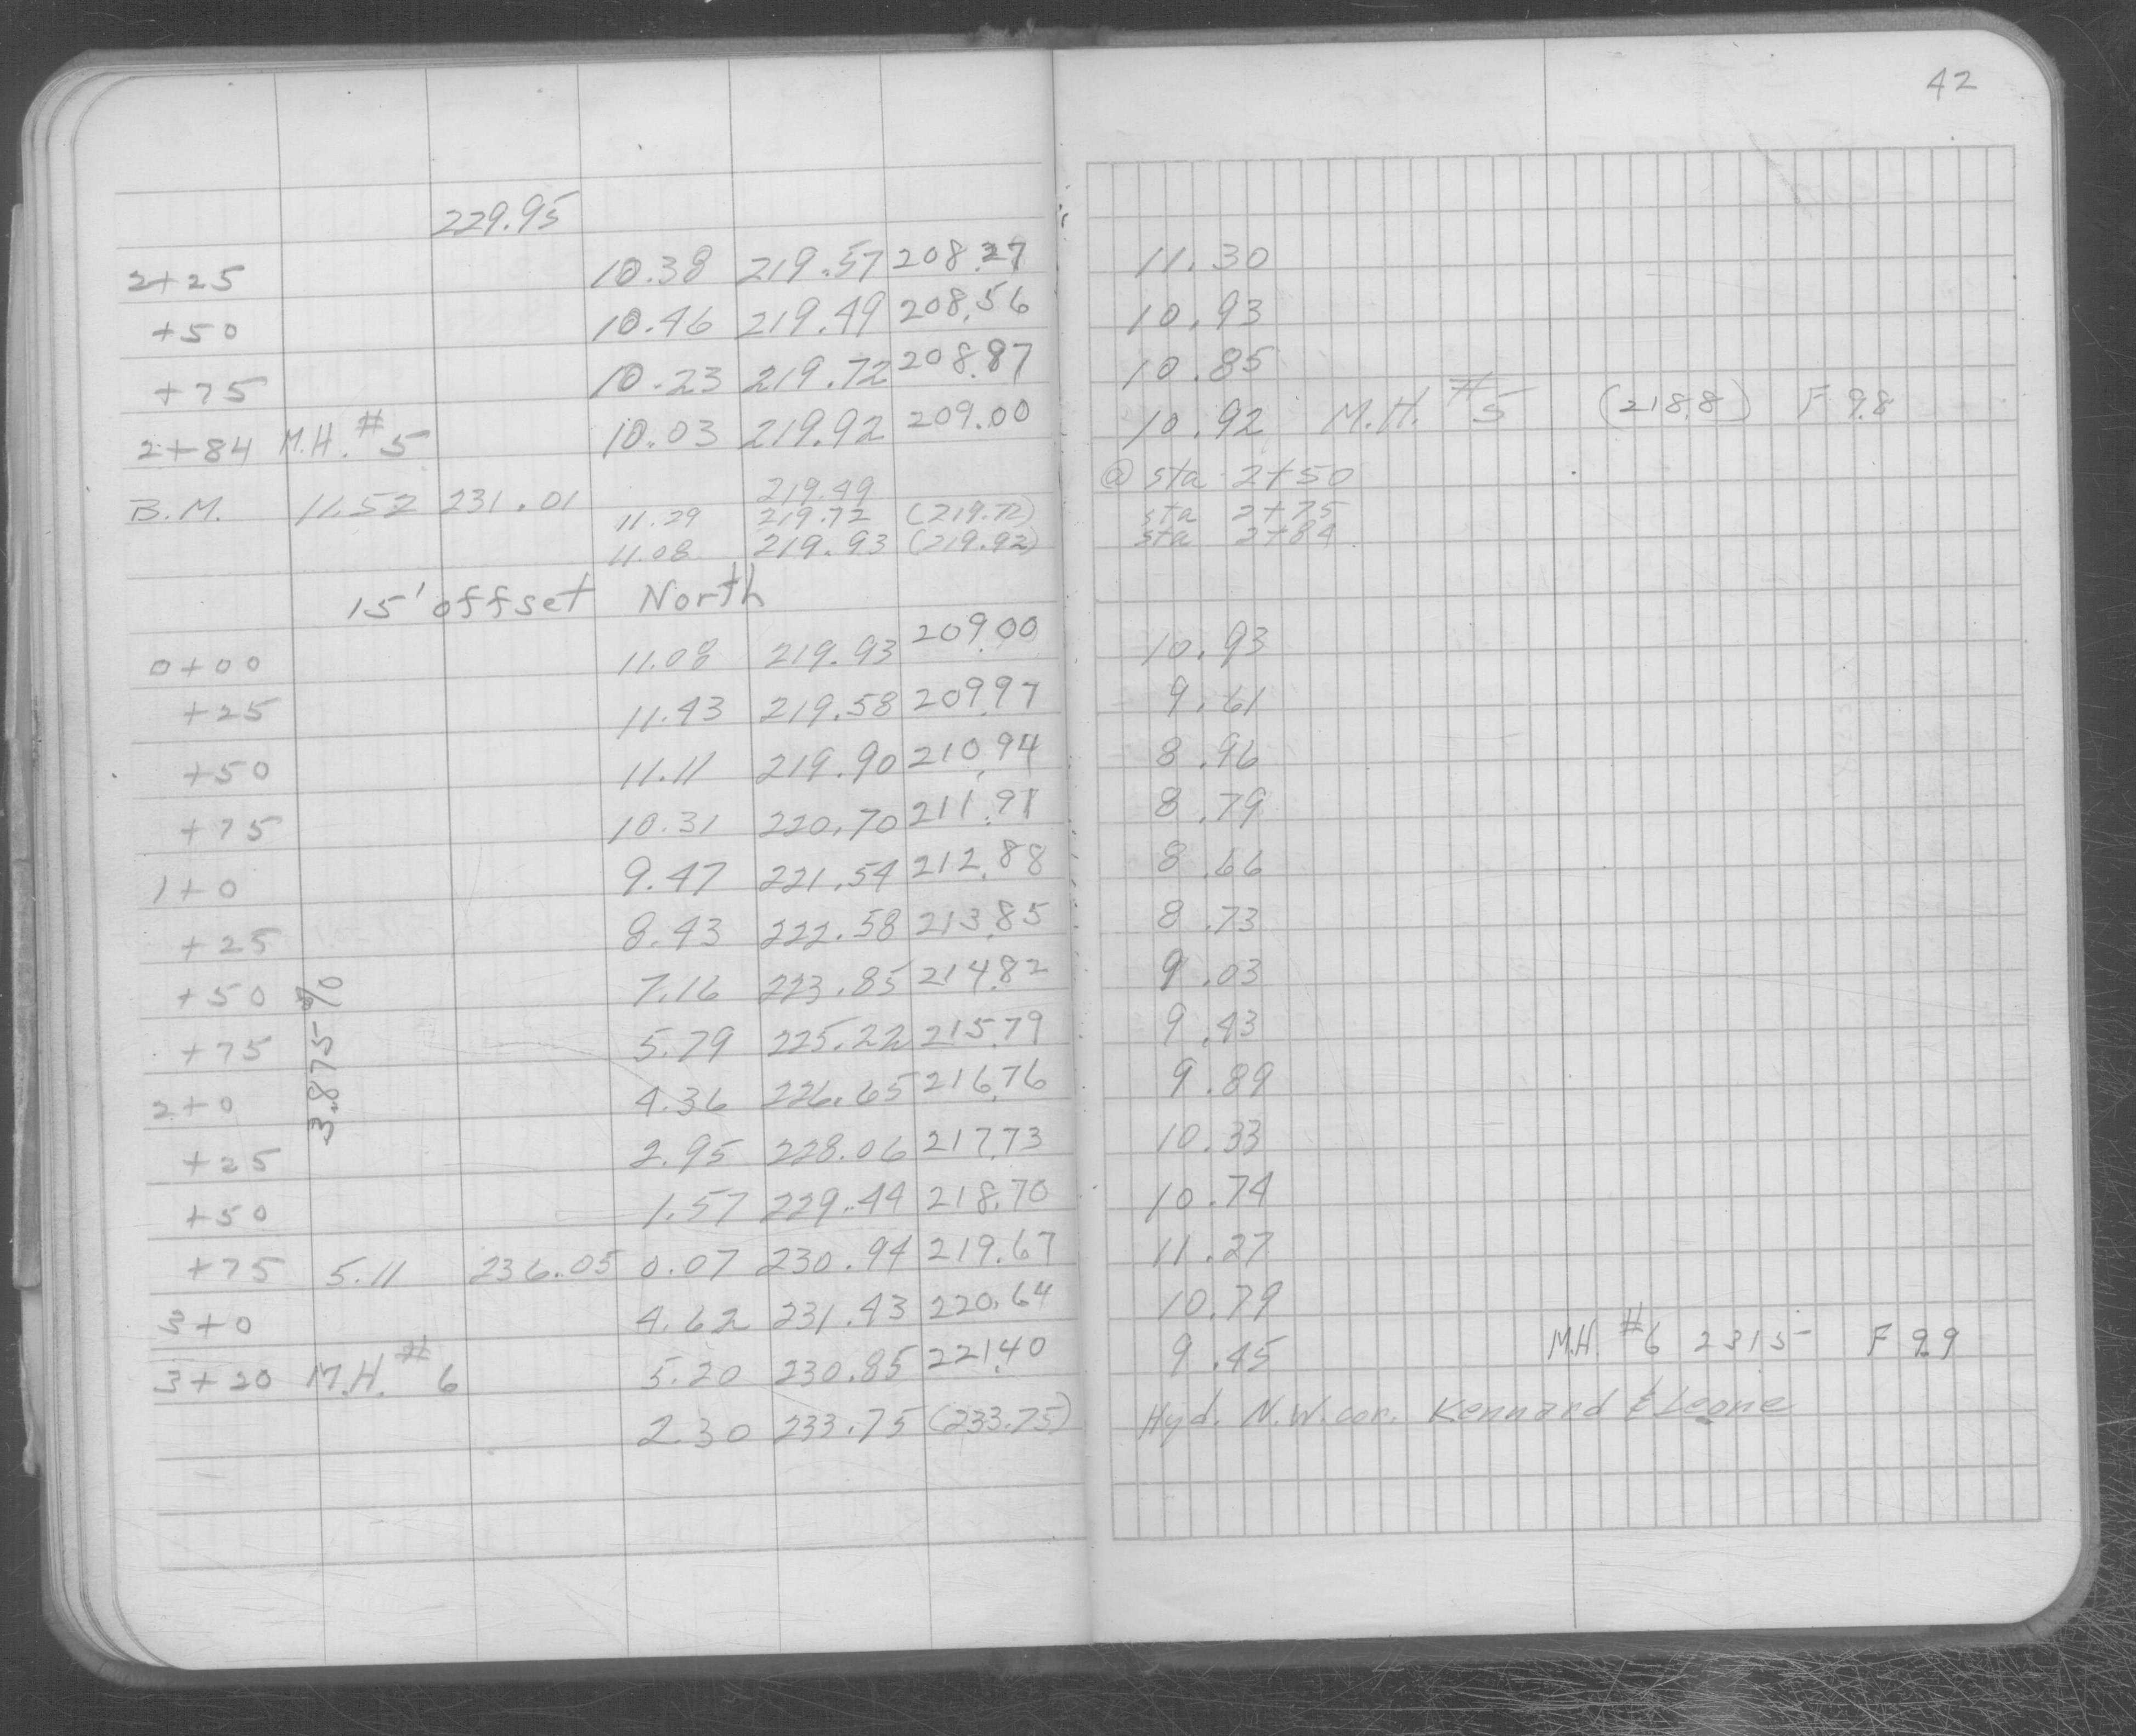 42
229.95
2+25 10.38 219.57 208.27 11.30
+50 10.46 219.49 208.56 10.93
+75 10.23 219.72 208.87 10.85
2+84 M.H. #5 10.03 219.92 209.00 10.92 M.H. #5 (218.8) F 9.8
219.49 @ sta 2+50
B.M. 11.52 231.01 11.29 219.72 (219.72) sta 2+75
11.08 219.93 (219.92) sta 2+84
15' offset North
0+00 11.08 219.93 209.00 10.93
+25 11.43 219.58 209.97 9.61
+50 11.11 219.90 210.94 8.96
+75 10.31 220.70 211.91 8.79
1+0 9.47 221.54 212.88 8.66
+25 8.43 222.58 213.85 8.73
+50 7.16 223.85 214.82 9.03
+75 5.79 225.22 215.79 9.43
2+0 4.36 226.65 216.76 9.89
3.875%
+25 2.95 228.06 217.73 10.33
+50 1.57 229.44 218.70 10.74
+75 5.11 236.05 0.07 230.94 219.67 11.27
3+0 4.62 231.43 220.64 10.79
3+20 M.H. #6 5.20 230.85 221.40 9.45 M.H. #6 231 5 F 9.9
2.30 233.75 (233.75) Hyd. N.W. cor. Kennard & Leone